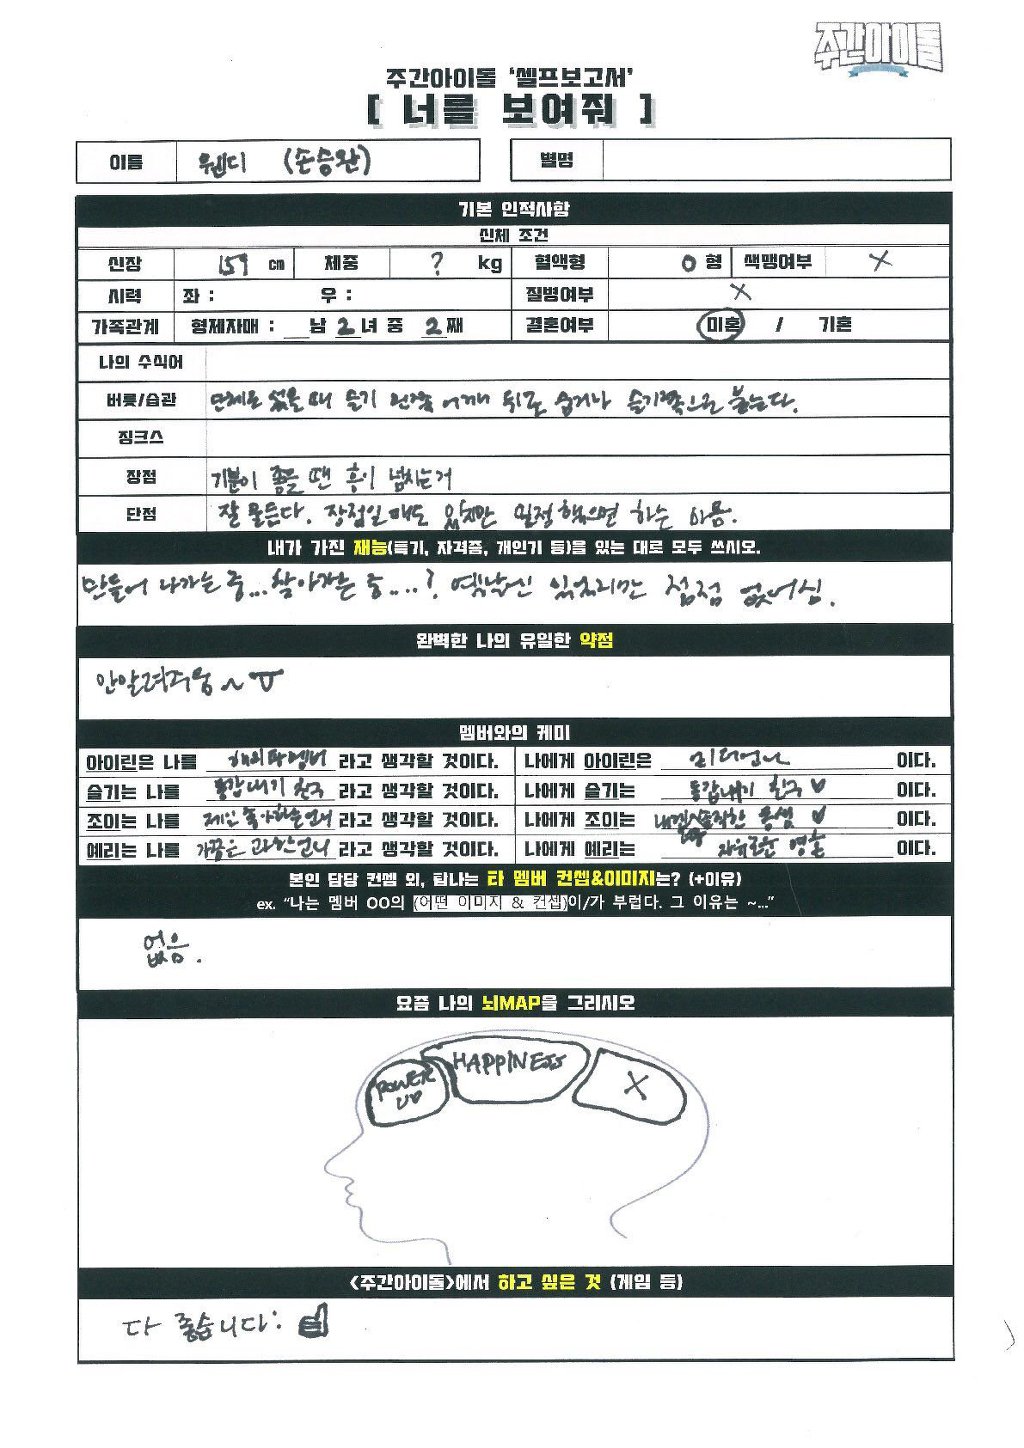 주간아이돌
주간아이돌 '셀프보고서'
[ 너를 보여줘 ]
이름 웬디 (손승완) 별명
기본 인적사항
신체 조건
신장 159 cm 체중 ? kg 혈액형 O 형 색맹여부 X
시력 좌 : 우 : 질병여부 X
가족관계 형제자매 : __남 2녀 중 2째 결혼여부 미혼 / 기혼
나의 수식어
버릇/습관 단체로 섰을 때 슬기 왼쪽 어깨 뒤로 숨거나 슬기쪽으로 붙는다.
징크스
장점 기분이 좋을 땐 흥이 넘치는거
단점 잘 물든다. 장점일 때도 있지만 하는 마음.
내가 가진 재능(특기, 자격증, 개인기 등)을 있는 대로 모두 쓰시오.
만들어 나가는 중... 찾아가는 중....? 옛날엔 있었지만 점점 없어짐.
완벽한 나의 유일한 약점
안알려주웅~ㅠ
멤버와의 케미
아이린은 나를 해외파멤버 라고 생각할 것이다. 나에게 아이린은 리더언니 이다.
슬기는 나를 동갑내기 친구 라고 생각할 것이다. 나에게 슬기는 동갑내기 친구♥ 이다.
조이는 나를 제일 좋아하는언니 라고 생각할 것이다. 나에게 조이는 솔직한 동생♥ 이다.
예리는 나를 가끔은 과한언니 라고 생각할 것이다. 나에게 예리는 자유로운 영혼 이다.
본인 담당 컨셉 외, 탐나는 타 멤버 컨셉&이미지는? (+이유)
ex. "나는 멤버 OO의 (어떤 이미지 & 컨셉)이/가 부럽다. 그 이유는 ~..."
없음.
요즘 나의 뇌MAP을 그리시오
HAPPINESS
POWER
UP
X
<주간아이돌>에서 하고 싶은 것 (게임 등)
다 좋습니다: